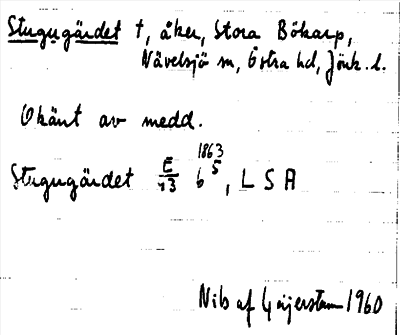 Stugugärdet †, åker, Stora Bökarp,
Nävelsjö sn, Östra hd, Jönk. l.
Okänt av medd.
Stugugärdet E/43 6 5 1863, L S A
Nils af Geijerstam 1960